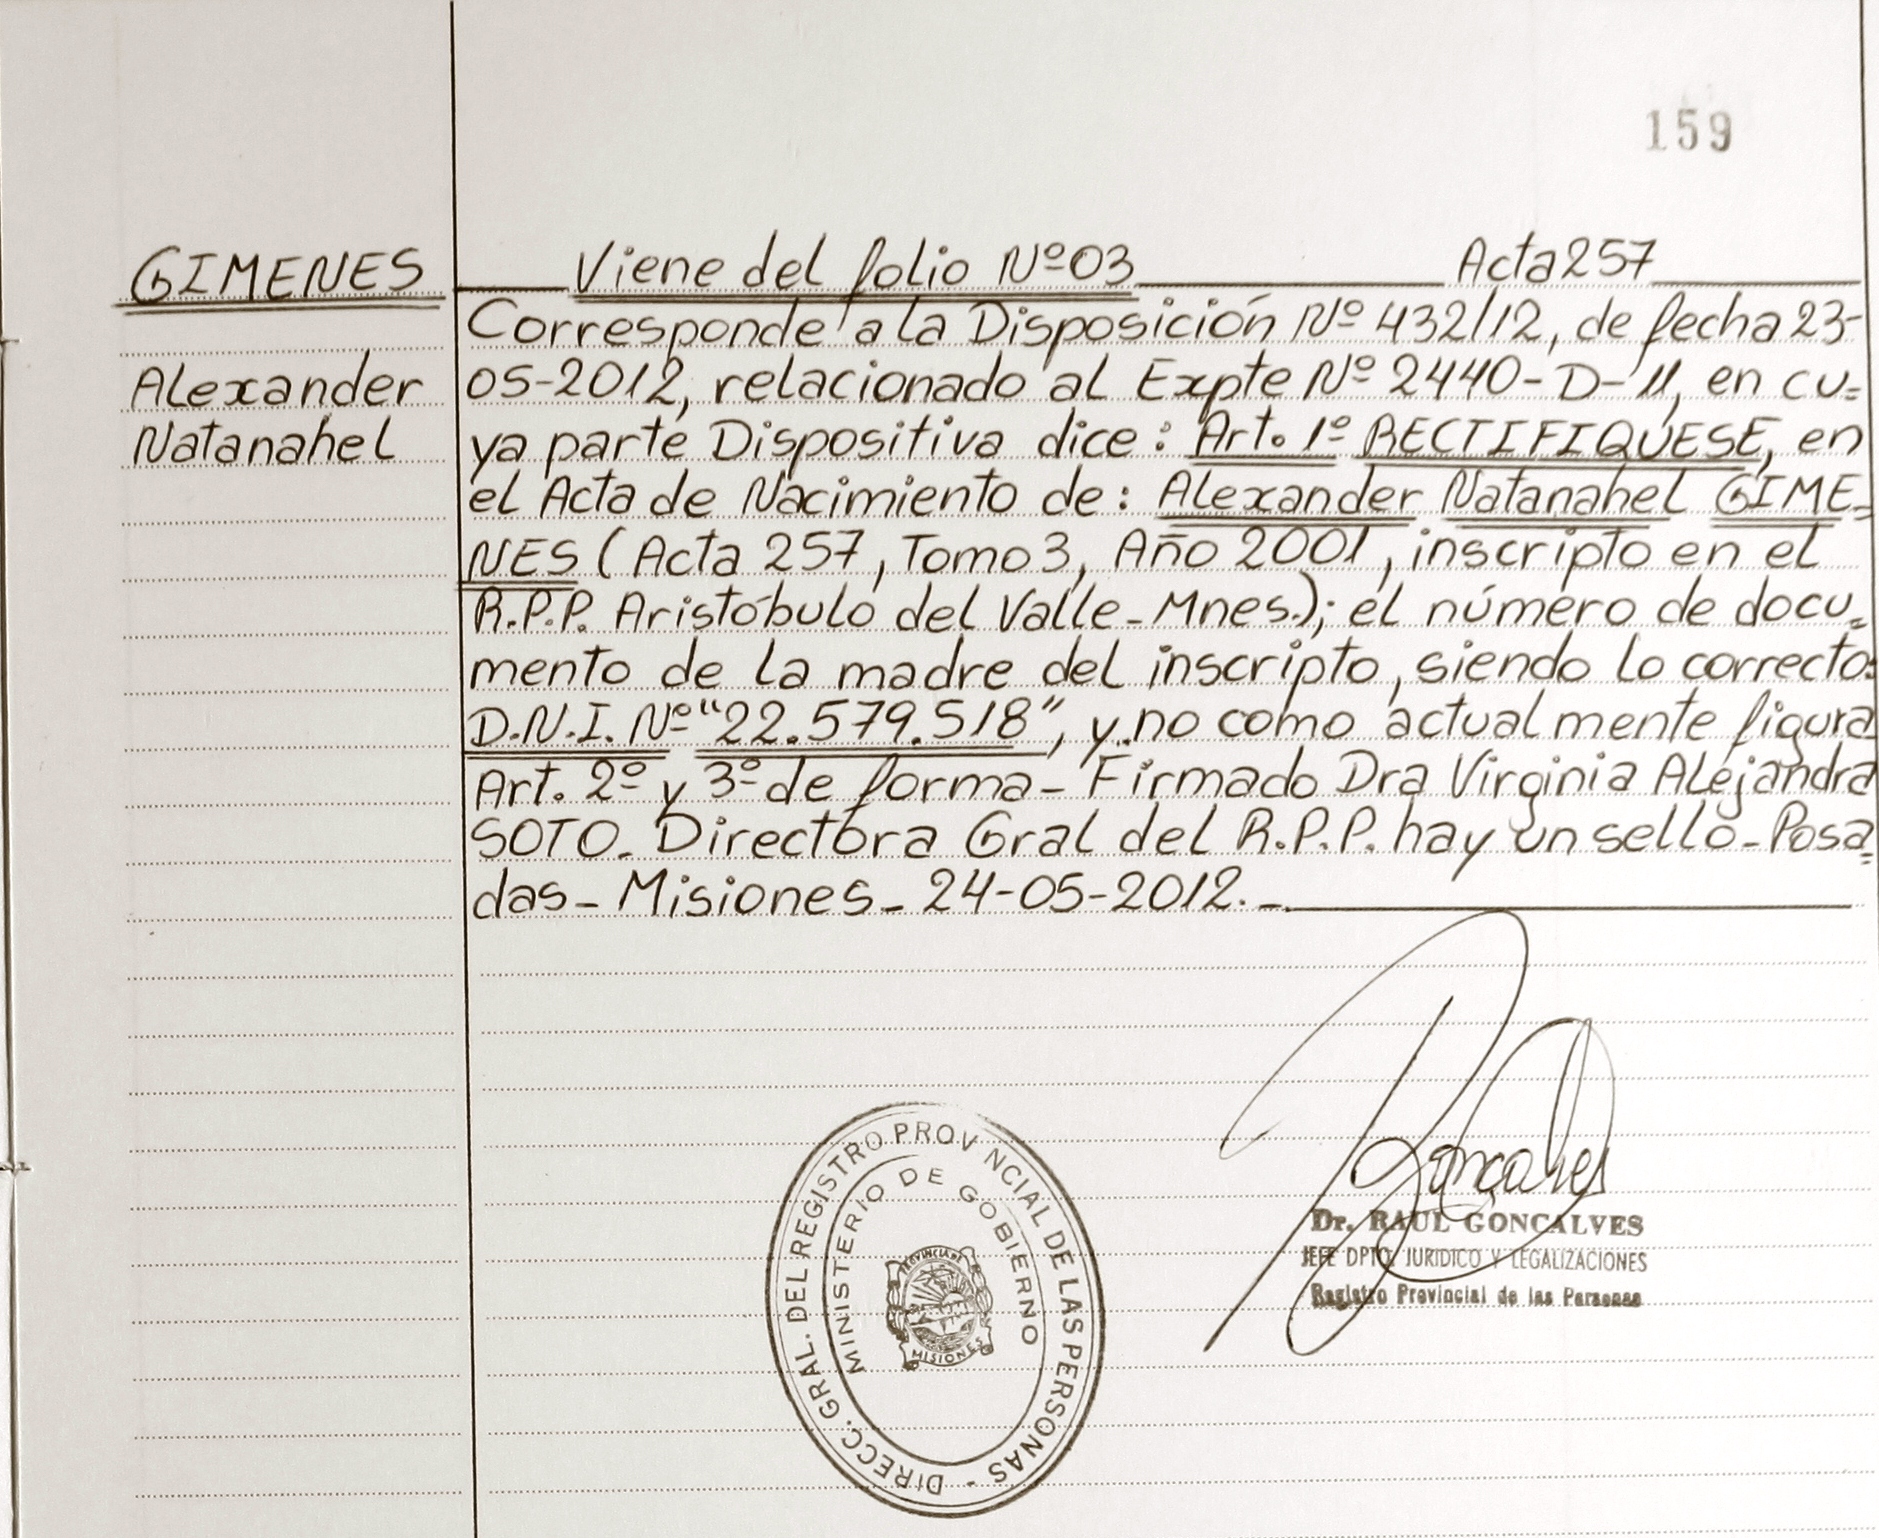 159
GIMENES
Alexander
Natanahel
Viene del folio Nº03 Acta 257
Corresponde a la Disposición Nº 432/12, de fecha 23-
05-2012, relacionado al Expte Nº 2440-D-11, en cu=
ya parte Dispositiva dice: Art. 1º RECTIFIQUESE, en
el Acta de Nacimiento de: Alexander Natanahel GIME=
NES (Acta 257, Tomo 3, Año 2001, inscripto en el
R.P.P. Aristóbulo del Valle-Mnes.); el número de docu=
mento de la madre del inscripto, siendo lo correcto:
D.N.I. Nº "22.579.518", y no como actualmente figura
Art. 2º y 3º de forma- Firmado Dra Virginia Alejandra
SOTO- Directora Gral del R.P.P. hay un sello-Posa=
das- Misiones- 24-05-2012.-
DIRECC. GRAL. DEL REGISTRO PROVINCIAL DE LAS PERSONAS -
MINISTERIO DE GOBIERNO
PROVINCIA DE
MISIONES
Goncalves
Dr. RAUL GONCALVES
JEFE DPTO. JURIDICO Y LEGALIZACIONES
Registro Provincial de las Personas